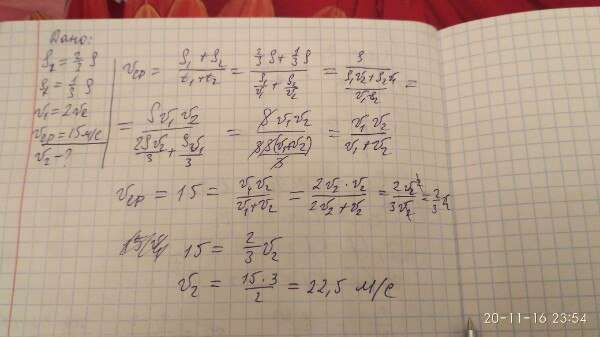 Дано:
S₁ = 2/3 S
S₂ = 1/3 S
v₁ = 2v₂
vср = 15 м/с
v₂ - ?
vср = (S₁ + S₂)/(t₁ + t₂) = (2/3 S + 1/3 S)/(S₁/v₁ + S₂/v₂) = S/((S₁v₂ + S₂v₁)/(v₁v₂)) =
= S v₁ v₂/(2Sv₂/3 + Sv₁/3) = S v₁ v₂/(S·3(v₁+v₂)/3) = v₁ v₂/(v₁ + v₂)
vср = 15 = v₁ v₂/(v₁ + v₂) = 2v₂ · v₂/(2v₂ + v₂) = 2v₂²/3v₂ = 2/3 v₂
15 = 2/3 v₂
v₂ = 15 · 3/2 = 22,5 м/с
20-11-16 23:54